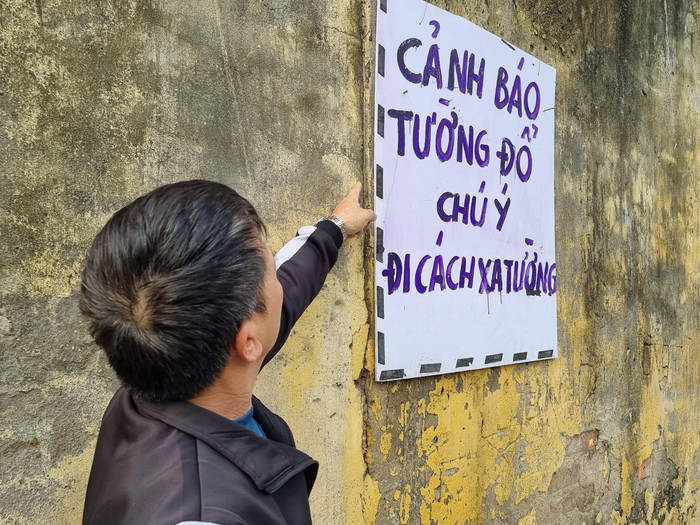 CẢNH BÁO
TƯỜNG ĐỔ
CHÚ Ý
ĐI CÁCH XA TƯỜNG